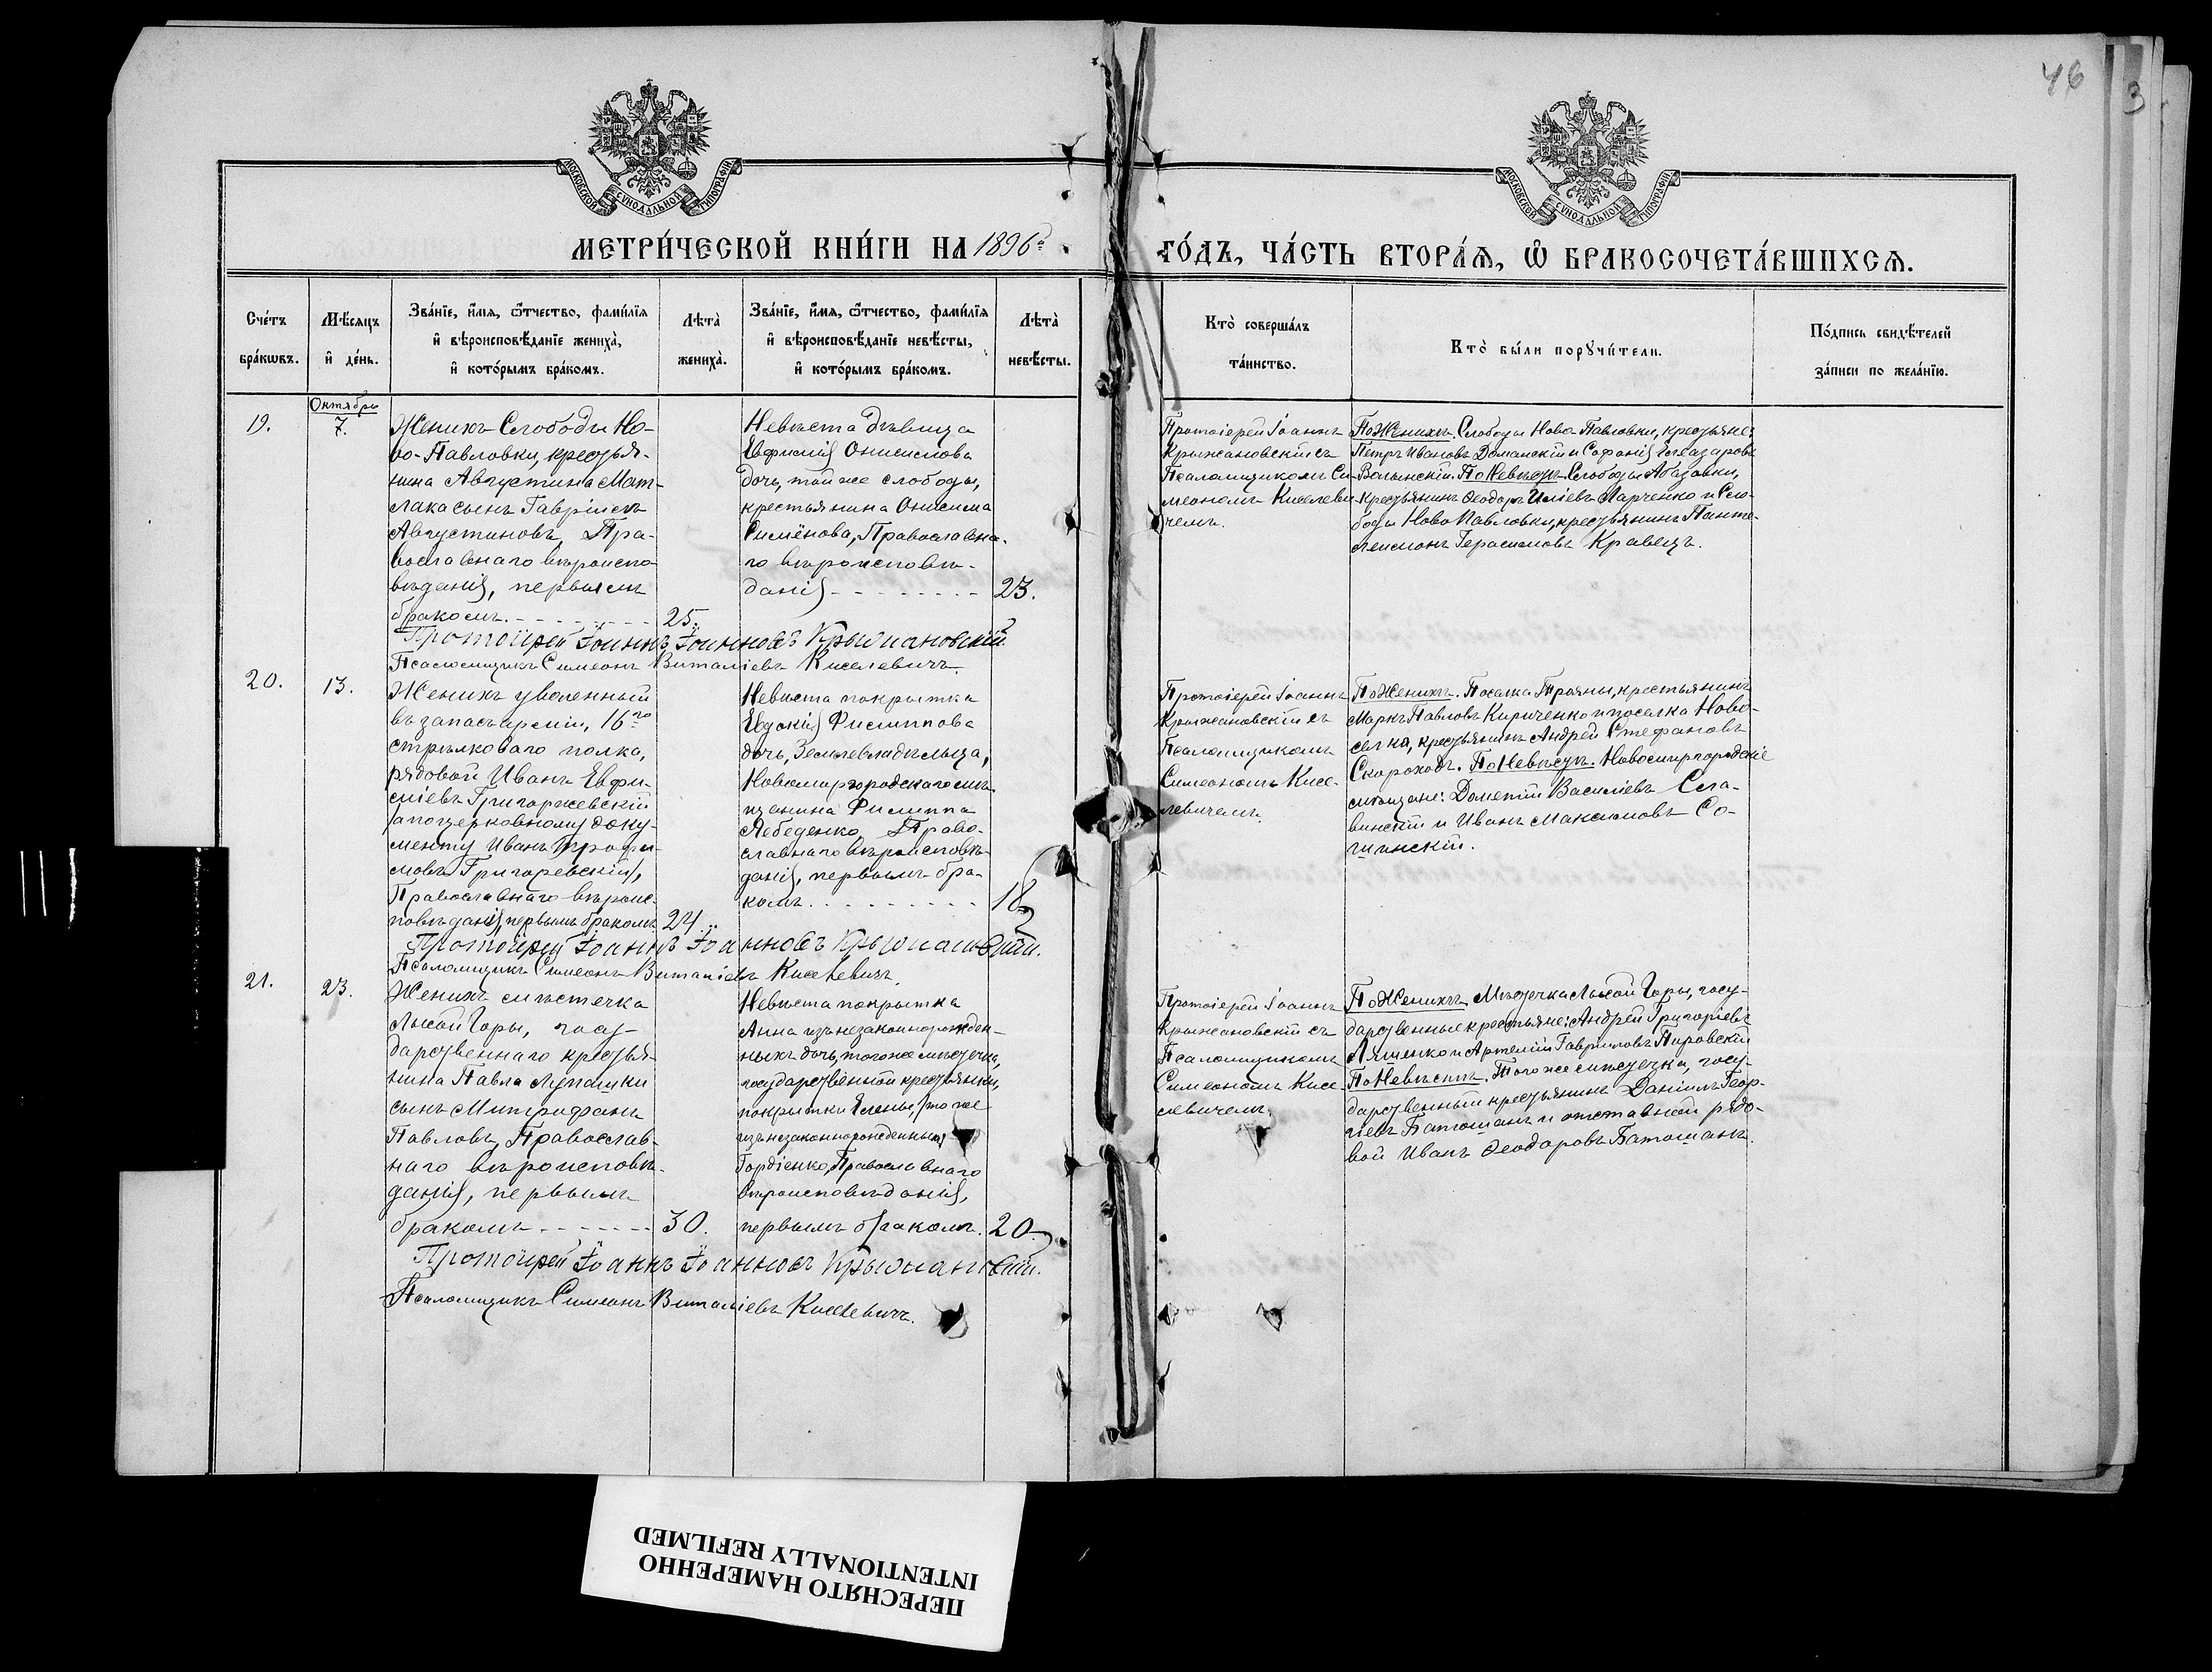 46
3
МОСКОВСКОЙ СѴНОДАЛЬНОЙ ТИПОГРАФІИ
МОСКОВСКОЙ СѴНОДАЛЬНОЙ ТИПОГРАФІИ
МЕТРИ́ЧЕСКОЙ КНИ́ГИ НА 1896й
ГО́ДЪ, ЧА́СТЬ ВТОРА́Ѧ, Ѽ БРАКОСОЧЕТА́ВШИХСѦ.
Сче́тъ бра́кѡвъ.
Мѣ́сяцъ и҆ де́нь.
Зва́нїе, и҆́мя, ѻ҆́тчество, фами́лїя
и҆ вѣроисповѣ́данїе жениха̀,
и҆ кото́рымъ бра́комъ.
Лѣта̀ жениха̀.
Зва́нїе, и҆́мя, ѻ҆́тчество, фами́лїя
и҆ вѣроисповѣ́данїе невѣ́сты,
и҆ кото́рымъ бра́комъ.
Лѣта̀ невѣ́сты.
Кто̀ соверша́лъ
та́инство.
Кто̀ бы́ли порꙋчи́тели.
По́дпись свидѣ́телей
за́писи по жела́нїю.
19.
Октябрь
7.
Женихъ Слободы Но-
во-Павловки, крестья-
нина Августина Мат-
лака сынъ Гавріилъ
Августиновъ, Пра-
вославнаго вѣроиспо-
вѣданія, первымъ
бракомъ. - - - - - - - -
25.
Невѣста дѣвица
Евфимія Онисимова
дочь, той же слободы,
крестьянина Онисима
Симёнова, Православна-
го вѣроисповѣ-
данія - - - - - - - -
23.
Протоіерей Іоаннъ
Крыжановскій съ
Псаломщикомъ Си-
меономъ Киселеви-
чемъ.
По Женихѣ. Слободы Ново-Павловки, крестьяне:
Петръ Ивановъ Доманскій и Софоній Елеазаровъ
Волынскій. По Невѣстѣ. Слободы Абазовки,
крестьянинъ Ѳеодоръ Иліевъ Ларченко и Сло-
боды Ново Павловки, крестьянинъ Панте-
леимонъ Герасимовъ Кравецъ.
Протоіерей Іоаннъ Іоанновъ Крыжановскій.
Псаломщикъ Симеонъ Виталіевъ Киселевичъ.
20.
13.
Женихъ уволенный
въ запасъ арміи, 16го
стрѣлковаго полка,
рядовой Иванъ Евфи-
міевъ Григоржевскій
/а по церковному доку-
менту Иванъ Трофи-
мовъ Григоревскій/,
Православнаго вѣроис-
повѣданія, первымъ бракомъ
24..
Невѣста покрытка
Евдокія Филиппова
дочь, Землевладѣльца,
Новомиргородскаго мѣ-
щанина Филиппа
Лебеденко, Право-
славнаго вѣроисповѣ-
данія, первымъ бра-
комъ. . . . . . . . . .
18
Протоіерей Іоаннъ
Крыжановскій съ
Псаломщикомъ
Симеономъ Кисе-
левичемъ.
По Женихѣ. Поселка Трояны, крестьянинъ
Маркъ Павловъ Кириченко и поселка Ново-
селка, крестьянинъ Андрей Стефановъ
Скороходъ. По Невѣстѣ. Новомиргородскіе
мѣщане: Дометій Василіевъ Сла-
винскій и Иванъ Максимовъ Со-
шинскій.
Протоіерей Іоаннъ Іоанновъ Крыжановскій.
Псаломщикъ Симеонъ Виталіевъ Киселевичъ.
21.
23.
Женихъ мѣстечка
Лысой Горы, госу-
дарственнаго крестья-
нина Павла Лупашки
сынъ Митрофанъ
Павловъ, Православ-
наго вѣроисповѣ-
данія, первымъ
бракомъ - - - - - - -
30.
Невѣста покрытка
Анна изъ незаконнорожден-
ныхъ дочь, того же мѣстечка,
государственной крестьянки,
покрытки Елены, /тоже
изъ незаконнорожденныхъ/
Гордіенко, Православнаго
вѣроисповѣданія,
первымъ бракомъ.
20
Протоіерей Іоаннъ
Крыжановскій съ
Псаломщикомъ
Симеономъ Кисе-
левичемъ.
По Женихѣ. Мѣстечка Лысой Горы, госу-
дарственные крестьяне: Андрей Григоріевъ
Ляшенко и Артемій Гавриловъ Пировскій
По Невѣстѣ. Того же мѣстечка, госу-
дарственный крестьянинъ Даніилъ Геор-
гіевъ Батошанъ и отставной рядо-
вой Иванъ Ѳеодоровъ Батошанъ.
Протоіерей Іоаннъ Іоанновъ Крыжановскій.
Псаломщикъ Симеонъ Виталіевъ Киселевичъ.
ПЕРЕСНЯТО НАМЕРЕННО
INTENTIONALLY REFILMED